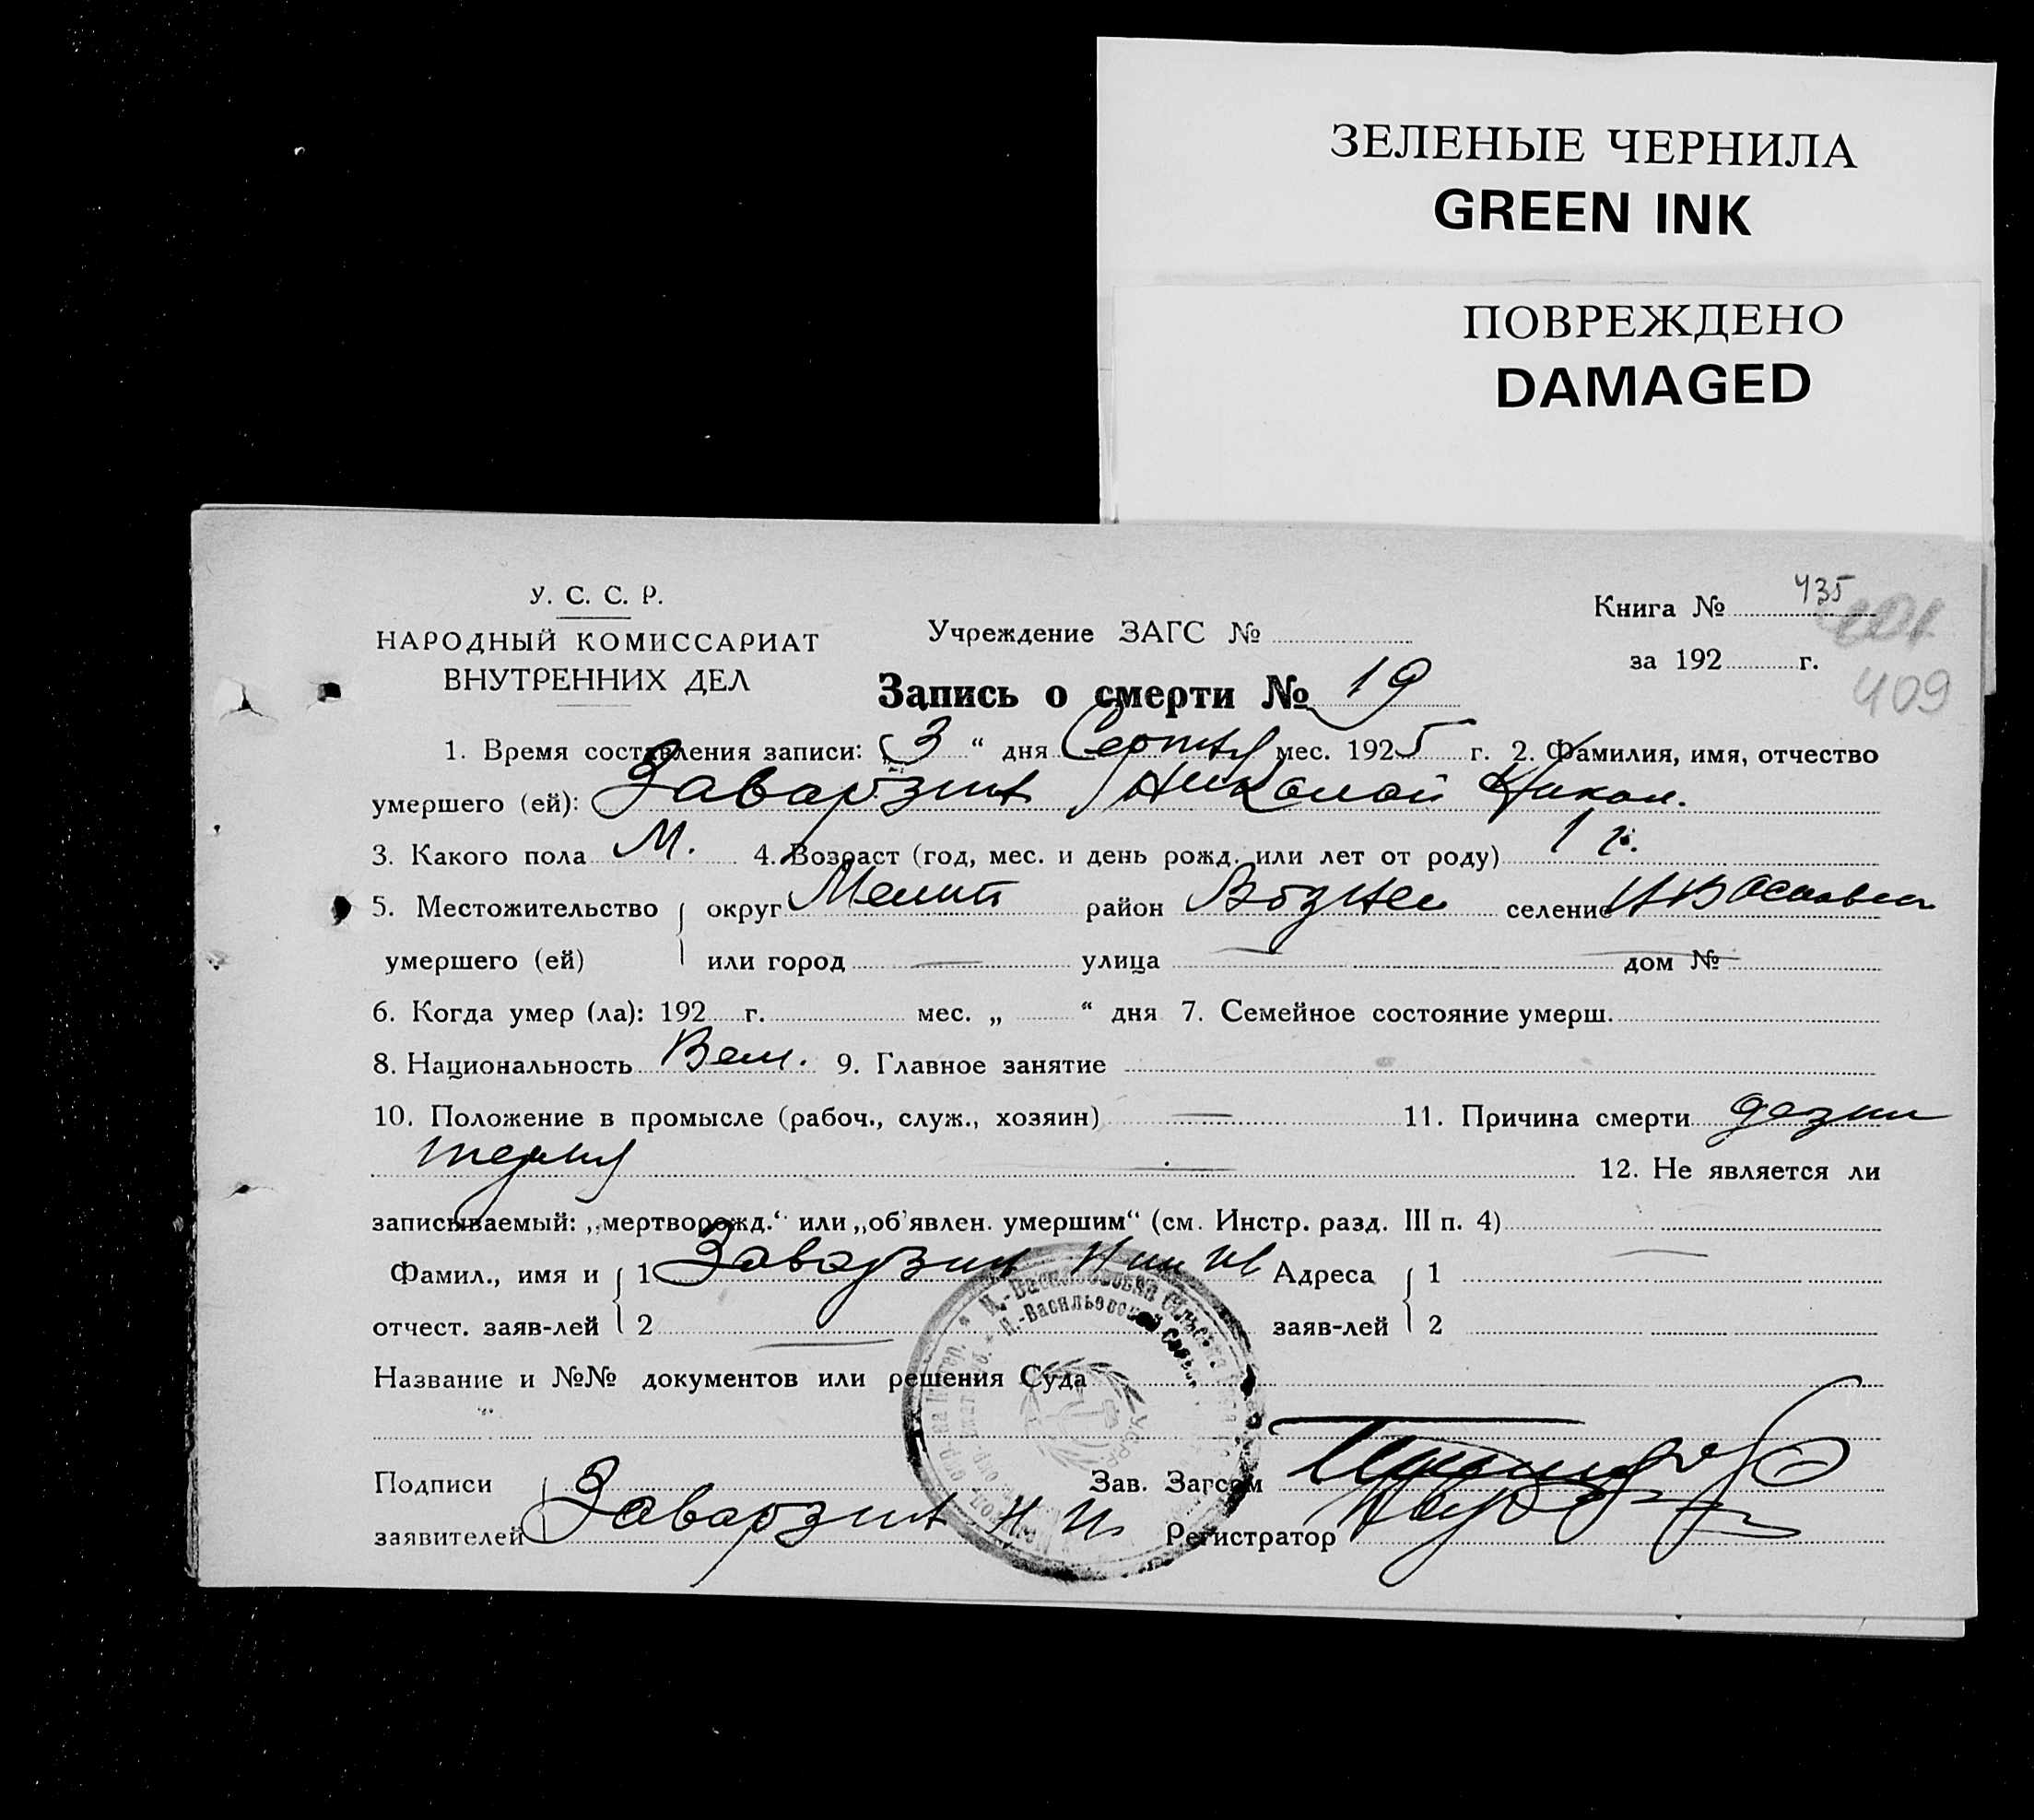 ЗЕЛЕНЫЕ ЧЕРНИЛА
GREEN INK
ПОВРЕЖДЕНО
DAMAGED
У. С. С. Р.
НАРОДНЫЙ КОМИССАРИАТ
ВНУТРЕННИХ ДЕЛ
Учреждение ЗАГС №
Книга № 435
за 192 г.
409
Запись о смерти № 19
1. Время составления записи: „3“ дня мес. 1925 г. 2. Фамилия, имя, отчество
умершего (ей): Заварзин Николай Никол.
3. Какого пола М. 4. Возраст (год, мес. и день рожд. или лет от роду) 1 г.
5. Местожительство округ Мелит район Вознес селение
умершего (ей) или город — улица — дом №
6. Когда умер (ла): 192 г. мес. „ “ дня 7. Семейное состояние умерш.
8. Национальность Вел. 9. Главное занятие
10. Положение в промысле (рабоч., служ., хозяин) — 11. Причина смерти дезин
терия — 12. Не является ли
записываемый: „мертворожд.“ или „об'явлен. умершим“ (см. Инстр. разд. III п. 4)
Фамил., имя и 1 Заварзин Ник Ив Адреса 1
отчест. заяв-лей 2 — заяв-лей 2
Название и №№ документов или решения Суда
Подписи Зав. Загсом
заявителей Заварзин Н И Регистратор
Н.-Васильовска Сільска
Н.-Васильевский
УСРР